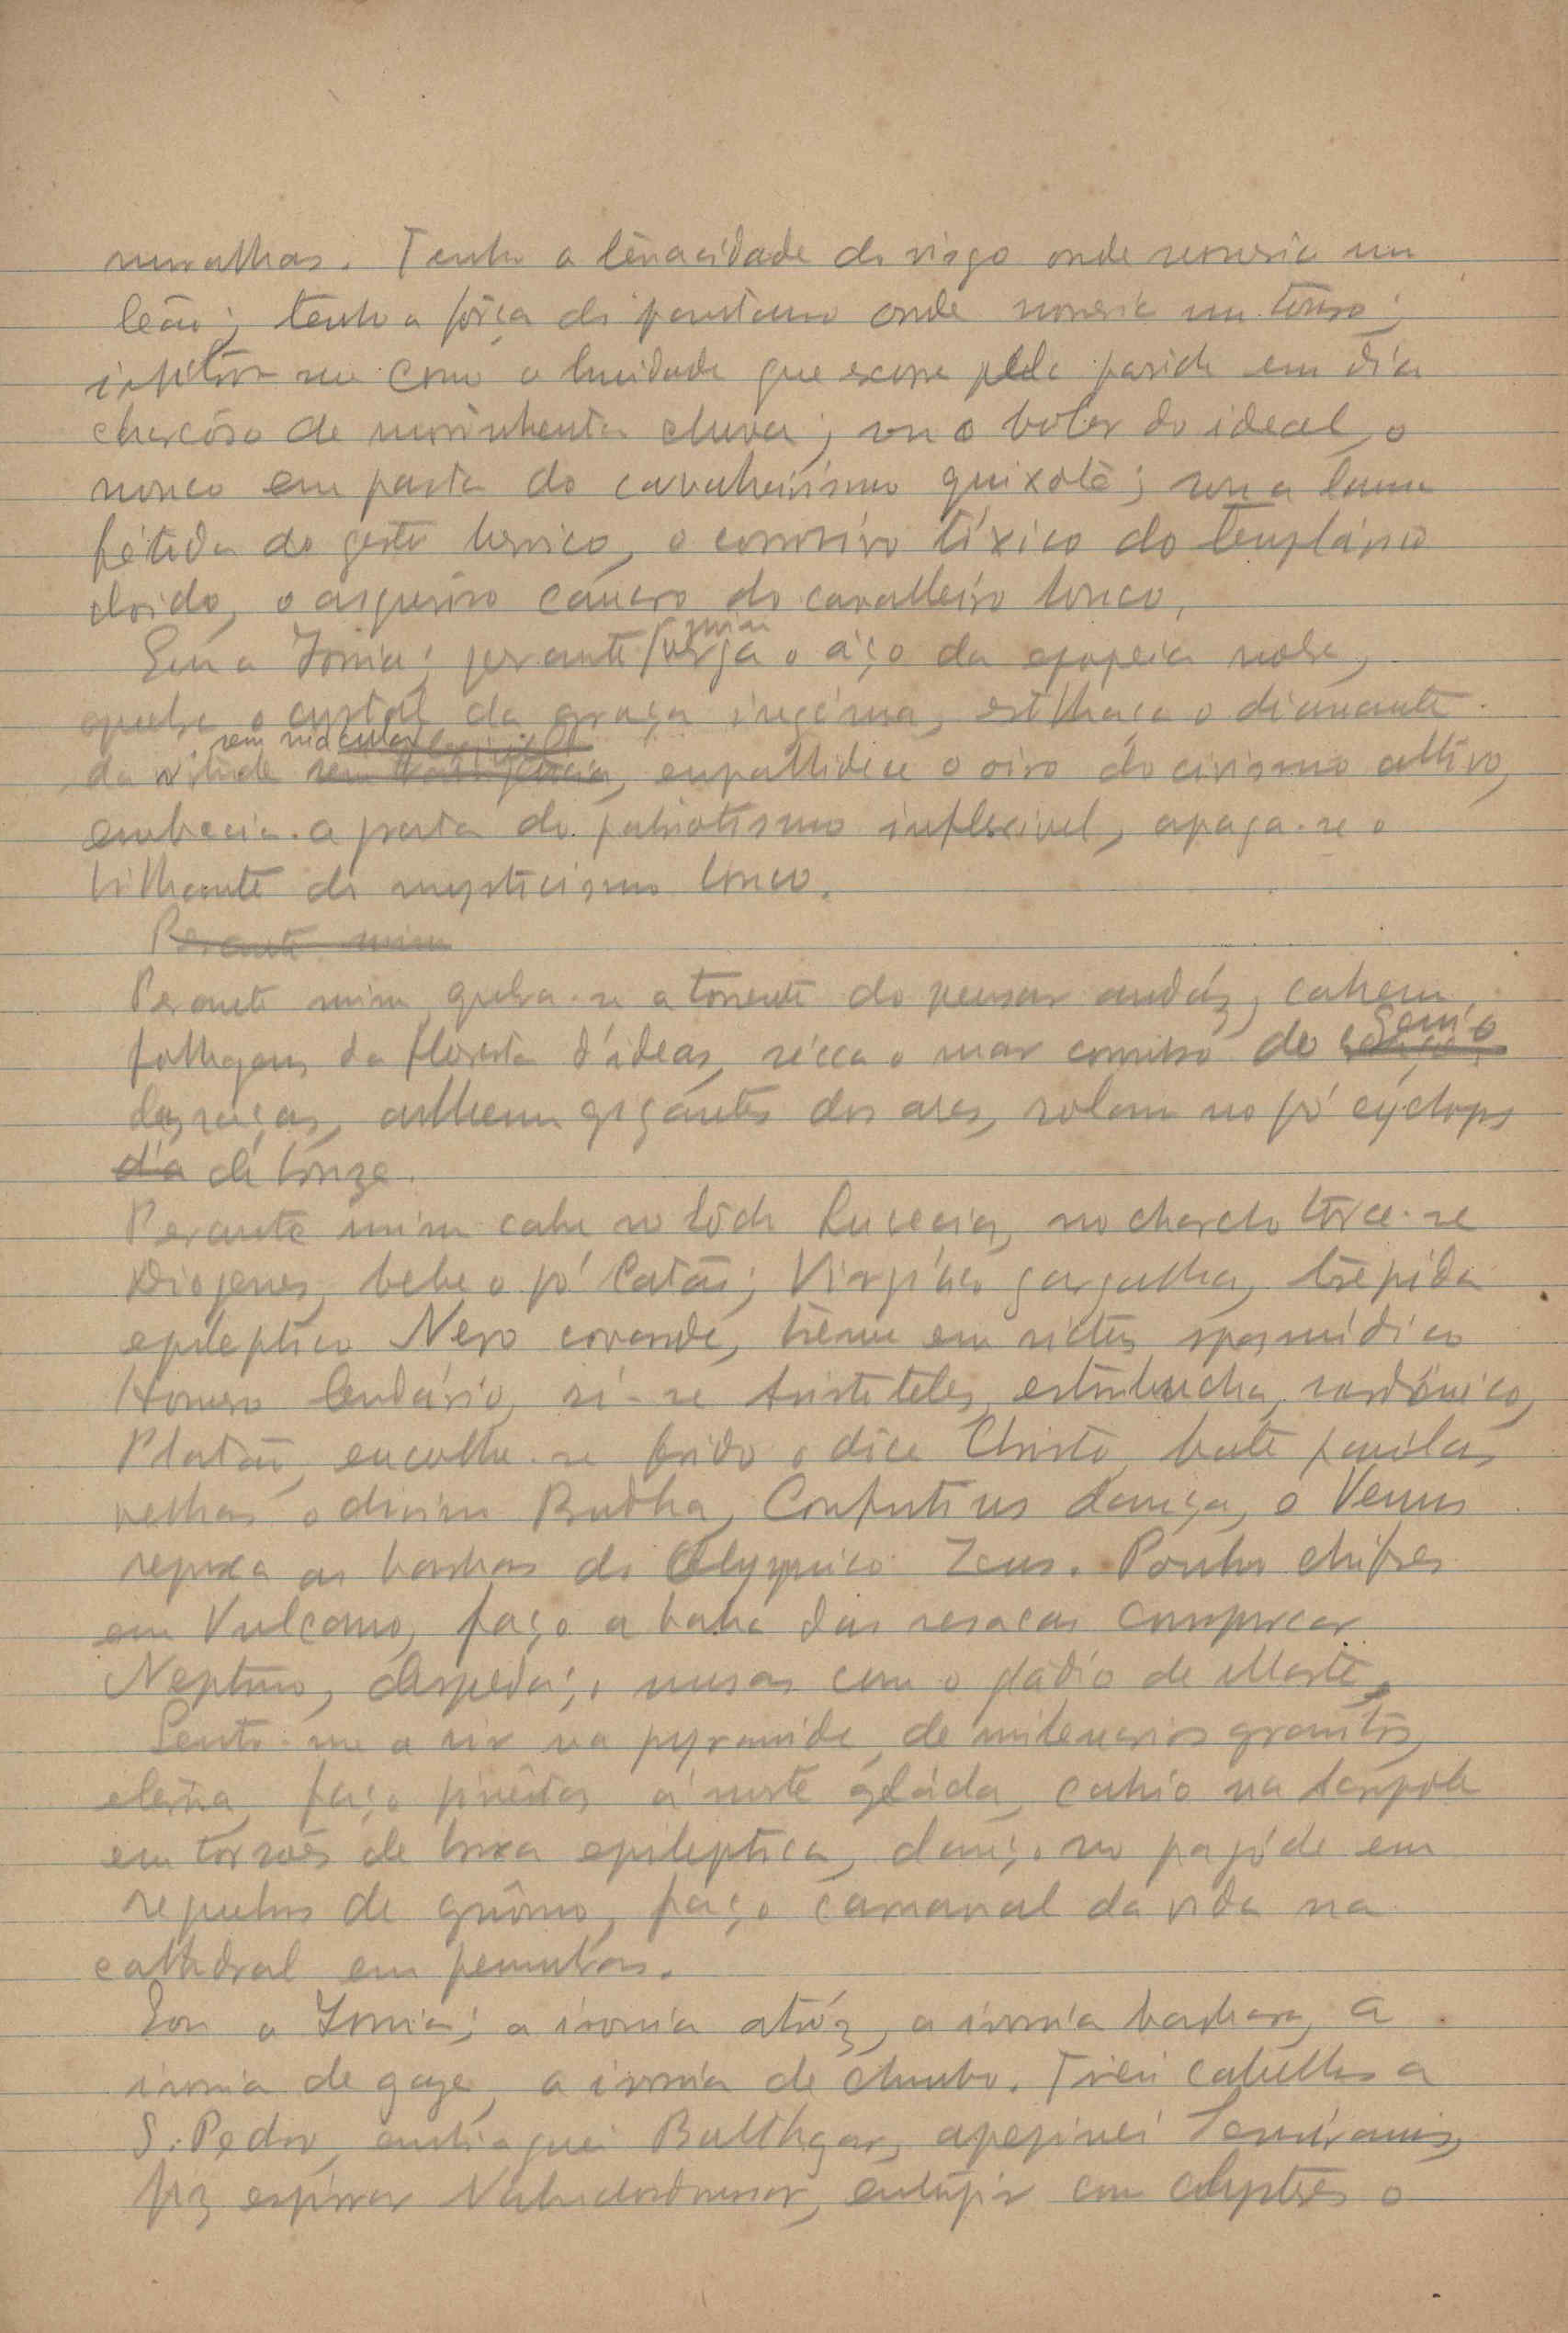 muralhas. Tenho a tenacidade do visgo onde morreria um
leão; tenho a fôrça do pantano onde morreria um touro;
infiltro-me como a humidade que escorre pela parede em dia
de morrinhenta chuva; sou o bolor do ideal, o
monco em pasta do cavalheirismo quixote; sou a lama
fétida do gesto heroico, o corrosivo tóxico do templário
doido, o asqueroso cancro do cavalleiro louco.
Sou a Ironia; perante mim verga o aço da epopeia nobre,
quebra o crystal da graça ingénua, estilhaça o diamante
da virtude sem macula, empallidece o oiro do civismo altivo,
embacia a prata do patriotismo inflexivel, apaga-se o
brilhante do mysticismo louco.
Perante mim
Perante mim quebra-se a torrente do pensar audáz, cahem
folhagens da floresta d'ideas, sécca o mar do Genio
das raças, gigantes dos ares, rolam no pó cyclops
d'a de bronze.
Perante mim cahe no lôdo Lucrecia, no charco torce-se
Diogenes, bebe o pó Catão; Virgilio gargalha, trepida
epileptico Nero covarde, treme em rictus spasmódico
Homero lendário, ri-se Aristoteles, estrebucha, sardónico,
Platão, encolhe-se o dôce Christo, bate
velhas o divino Budha, Confutius dança, e Venus
repuxa as barbas do Olympico Zeus. Ponho chifres
em Vulcano, faço a baba das resacas conspurcar
Neptuno, despedaço musas com o gládio de Marte.
Sento-me a rir na pyramide de milenarios granitos,
eterna, faço piruêtas á morte gelada, caho na
em torsões de bruxa epileptica, danço no pagóde em
de gnômo, faço carnaval da vida na
cathedral em penumbras.
Sou a Ironia; a ironia atróz, a ironia barbara, a
ironia de gaze, a ironia de chumbo. Tirei cabellos a
S. Pedro, embriaguei Balthazar, apepinei Semiramis,
fiz espirrar Nabucodonosor, entupir com clysteres o